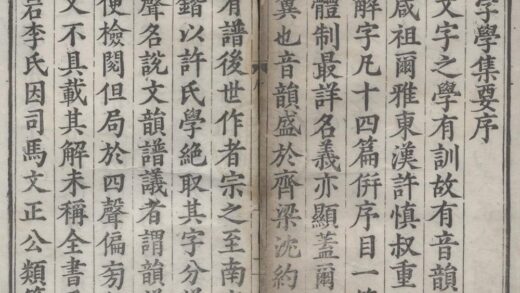 字學集要序
文字之學有訓故有音韻
咸祖爾雅東漢許慎叔重
解字凡十四篇併序目一
體制最詳名義亦顯蓋爾
翼也音韻盛於齊梁沈約
有譜後世作者宗之至南
鍇以許氏學絕取其字分
聲名說文韻譜議者謂韻
便檢閱但局於四聲偏旁
又不具載其解未稱全書
岩李氏因司馬文正公類